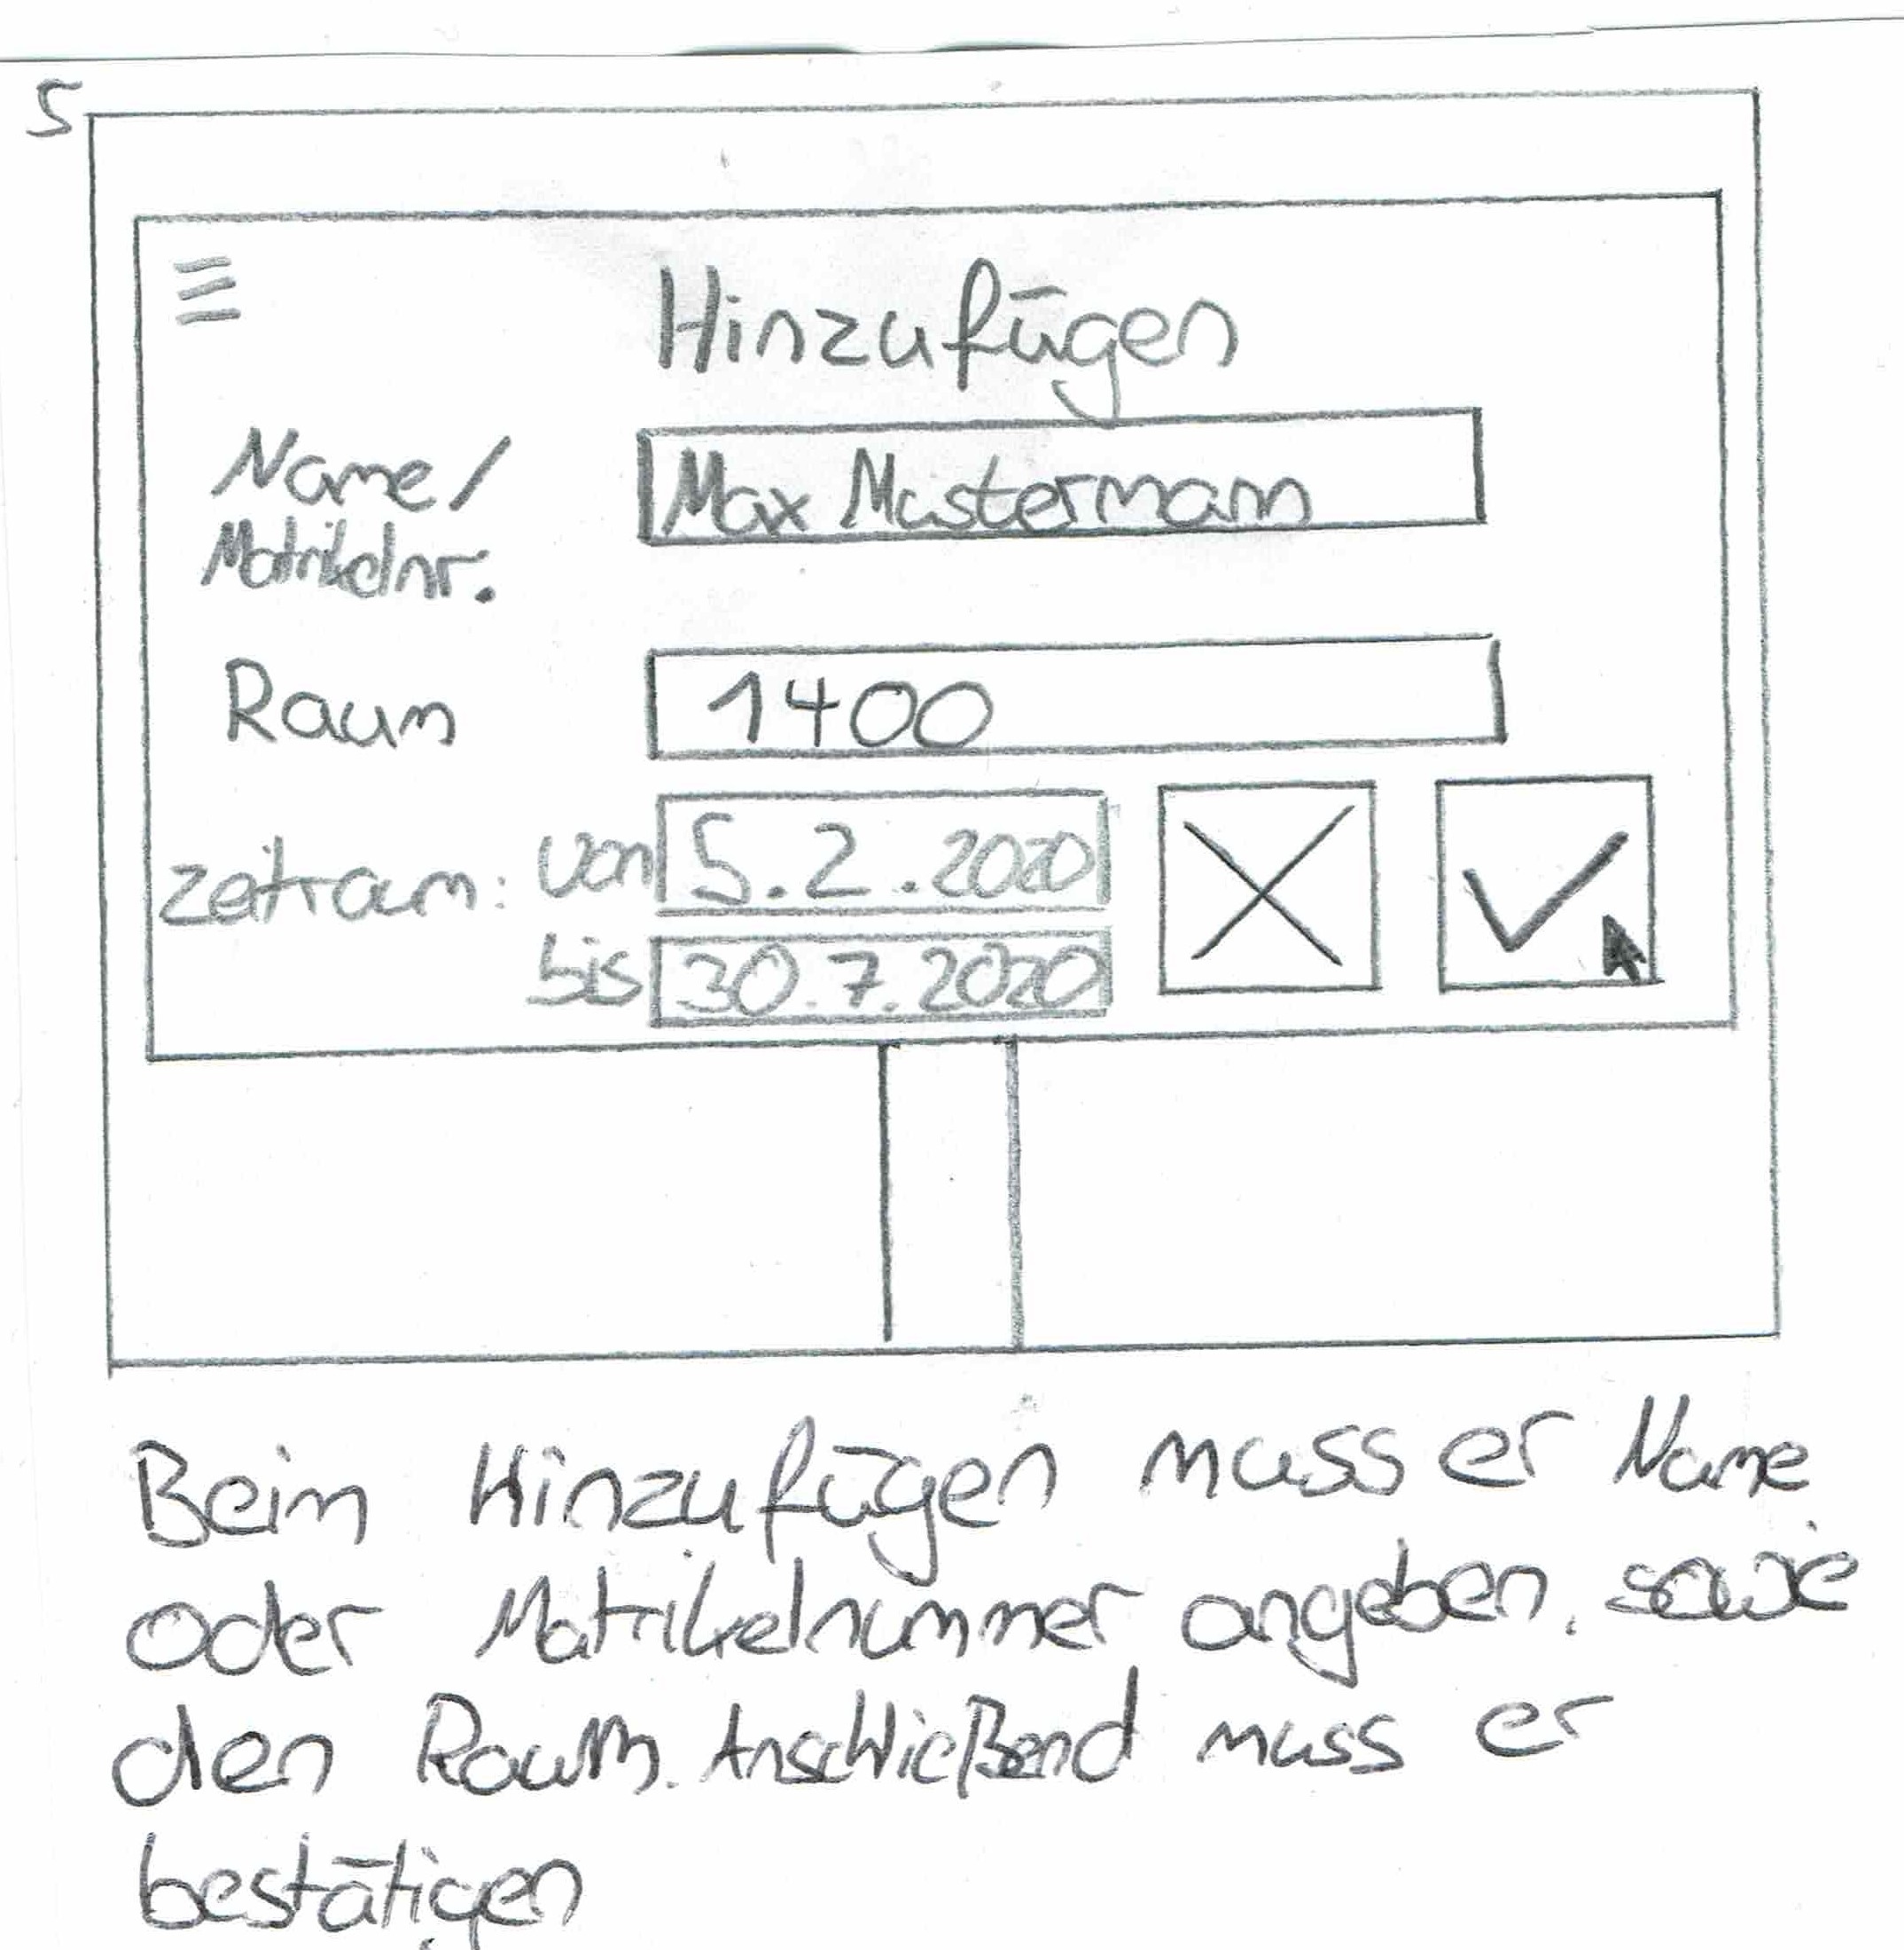 5
Hinzufügen
Name/
Matrikelnr.
Max Mustermann
Raum
1400
Zeitraum: von 5.2.2020
bis 30.7.2020
Beim Hinzufügen muss er Name
oder Matrikelnummer angeben, sowie
den Raum. Anschließend muss er
bestätigen